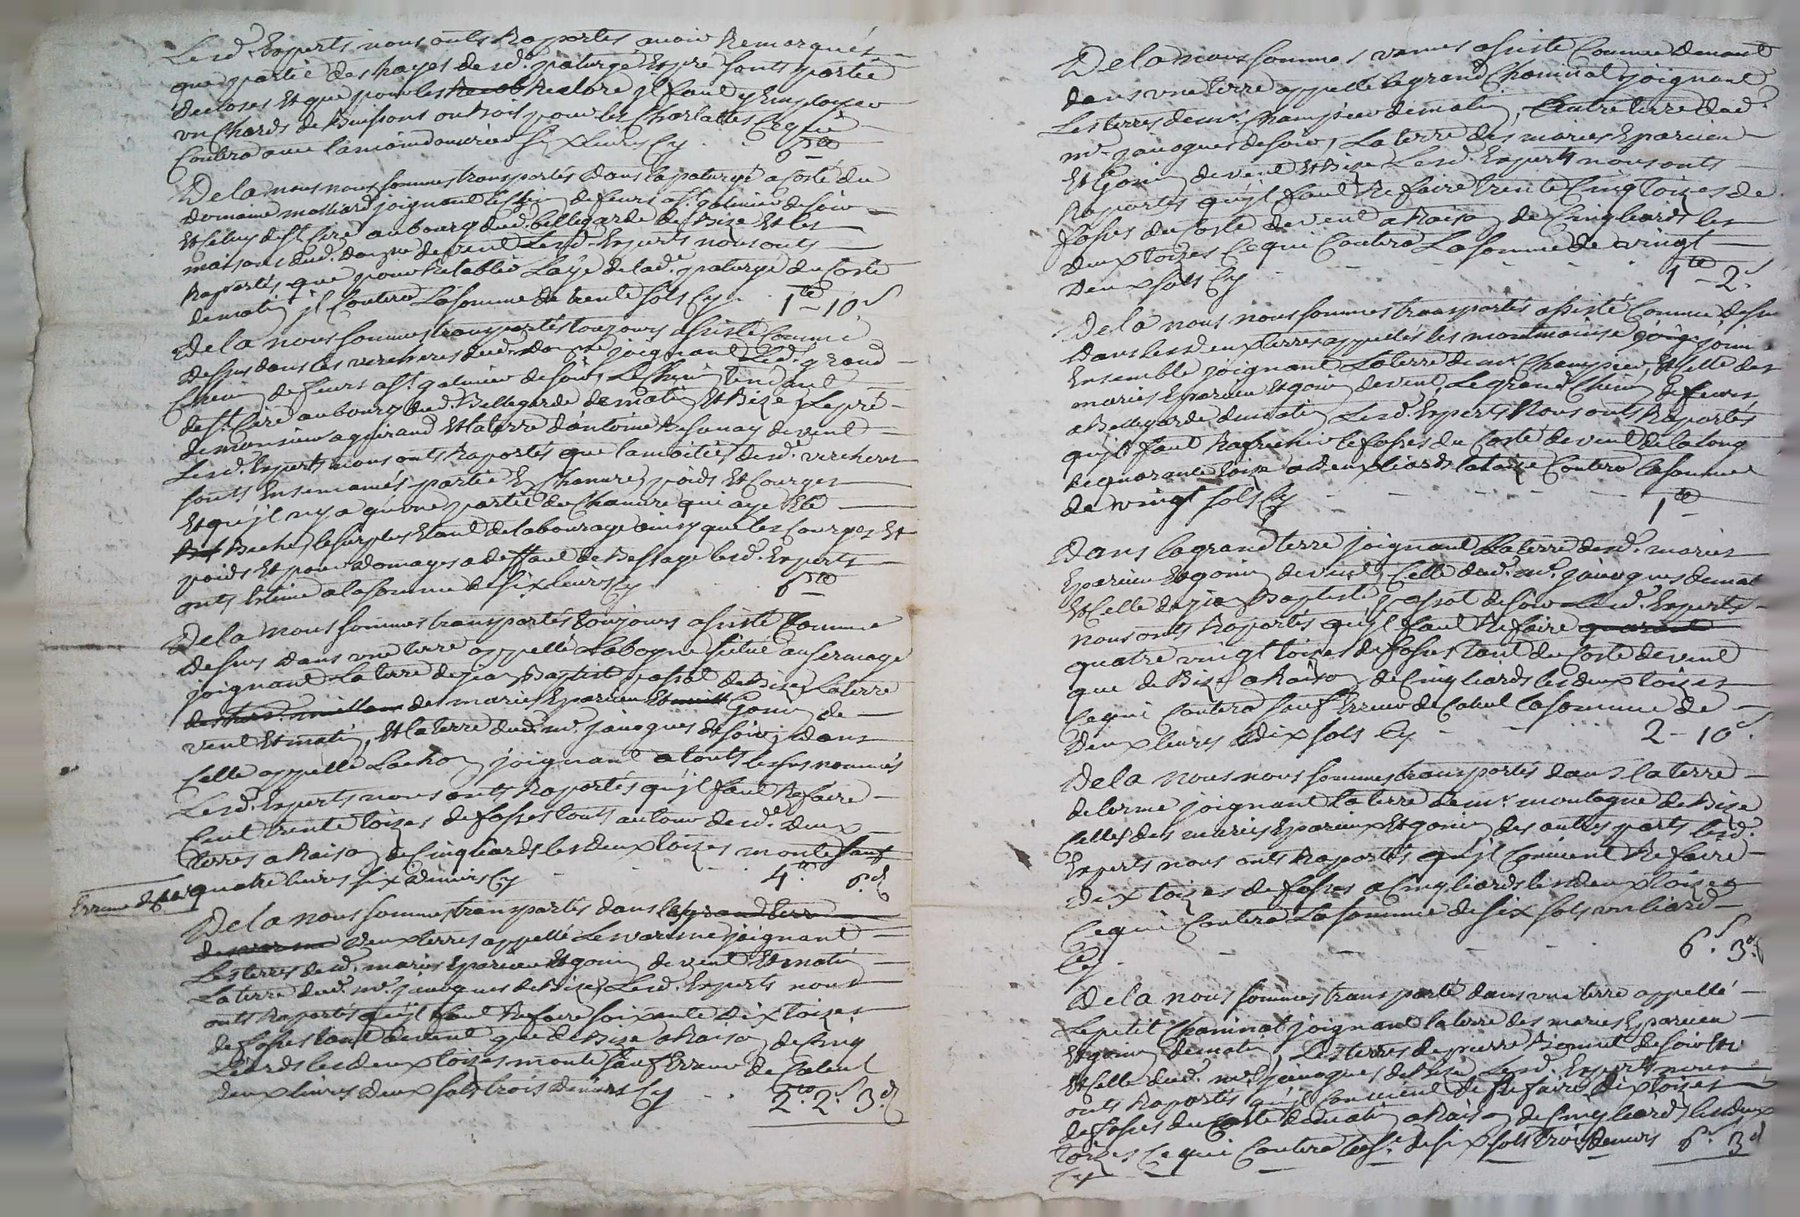 Lesd. Experts nous onts Raportes avoir Remarqués
que partie des hayes desd. paturge et pré sonts partie
decloses Et que pour les Reclore jl faut y Employer
un Chards de Buissons ou Bois pour les Charlattes Ce qui
Coutera avec la main douvrier six Livres Cy 6 tt
De la nous nous sommes transportés dans la paturge a Costé du
domaine molliard joignant le Chin de feurs a St galmier de soir
Et Celuy de St Ciré au bourg dud. bellegarde de Bize Et les
maisons dud. domne de vent Lesd. Experts nous onts
Raportés que pour Retablir Laye de lad. paturge du Costé
de matin jl Coutera La somme de trente sols Cy 1 tt 10 s
De la nous sommes transportés toujours assisté Comme
dessus dans les vercheres dud. domne joignant Led. grand
Chein de feurs a St galmier de soir, Le Chein tendant
de St Ciré au bourg dud. Bellegarde de matin Et Bize, Le pré
de monsieur aguirand Et la terre d'antoine de vent
Lesd. Experts nous onts Raportés que la moitiés desd. vercheres
sonts Ensemancés partie En Chanvre, poids Et Courges
Et qu'jl n'y a qu'une partie de Chanvre qui aye Eté
Beché, le surplus Etant de labourage ainsy que les Courges Et
poids Et pour domages a deffaut de Bessage lesd. Experts
onts Estimé a la somme de six livres Cy 6 tt
De la nous sommes transportés toujours assisté Comme
dessus dans une terre appellé Labogne située au fermage
joignant La terre de jean Baptiste passot de Bize, La terre
des mariés Eparvier Et Gonin de
vent Et matin, Et la terre dud. mr. janoques de soir, dans
Celle appellé Lachon joignant a touts les sus nommés
Lesd. Experts nous onts Raportés qu'jl faut Refaire
Cent trente toises de fosses touts autour desd. deux
terres a Raison de Cinq liards les deux toises monte sauf
Erreur de quatre livres six deniers Cy 4 tt 6 d
De la nous sommes transportés dans la grand terre
deux terres appellé Le varenne joignant
Les terres desd. mariés Eparvier Et gonin de vent Et matin
La terre dud. mr. janoques de Bize, Lesd. Experts nous
onts Raportés qu'jl faut Refaire soixante dix toises
de fosses tant de vent que de Bize a Raison de Cinq
Liards les deux toises monte sauf Erreur de Calcul
deux livres deux sols trois deniers Cy 2 tt 2 s 3 d
De la nous sommes venus assisté Comme devant
dans une terre appellé le grand Chaminat joignant
Les terres de mr. Champier de matin, Autre terre dud.
mr. janoques de soir, La terre des mariés Eparvier
Et Gonin de vent Et Bize Lesd. Experts nous onts
Raportés qu'jl faut Refaire trente Cinq toises de
fosses du Costé de vent a Raison de Cinq liards les
deux toises Ce qui Coutera La somme de vingt
deux sols Cy 1 tt 2 s
De la nous nous sommes transportés assisté Comme dessus
dans les deux terres appellés les montmoise joins
Ensemble joignant La terre de mr Champier, Et Celle des
mariés Eparvier Et gonin de vent, Le grand Chein de feurs
a Bellegarde de matin Lesd. Experts Nous onts Raportés
qu'jl faut Rafreichir le fosses du Costé de vent de la long
de quarante toise a deux liards la toise Coutera la somme
de vingt sols Cy 1 tt
Dans la grand terre joignant La terre desd. mariés
Eparvier Et gonin de vent, Celle dud. mr. janoques de mat
Et Celle de jean Baptiste passot de soir Lesd. Experts
nous onts Raportés qu'jl faut Refaire quarante
quatre vingt toises de fosses tant du Costé de vent
que de Bize a Raison de Cinq liards les deux toises
Ce qui Coutera sauf Erreur de Calcul la somme de
deux livres dix sols Cy 2 - 10 s
De la nous nous sommes transportés dans la terre
de lorme joignant La terre de mr montagne de Bize
Celles des mariés Eparvier Et gonin des autres parts lesd.
Experts nous onts Raportés qu'jl Convient Refaire
dix toises de fosses a Cinq liards les deux toises
Ce qui Coutera La somme de six sols un liard
Cy 6 s 3 d
De la nous sommes transporté dans une terre appellé
Le petit Chaminat joignant la terre des mariés Eparvier
Et gonin de matin, Les terres de pierre de soir Et
Et Celle dud. mr. janoques de Bize Lesd. Experts nous
onts Raportés qu'jl Convient de Refaire dix toises
de fosses du Costé de matin a Raison de Cinq liards les deux
toises Ce qui Coutera la Se. de six sols trois deniers 6 s 3 d
Cy